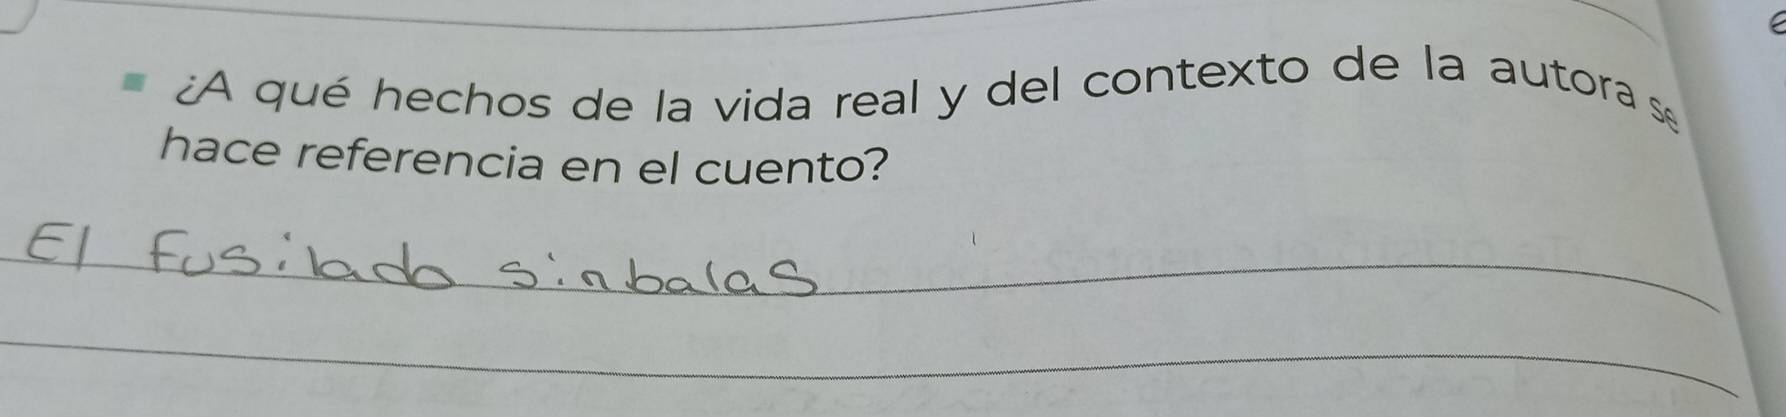 ¿A qué hechos de la vida real y del contexto de la autora se
hace referencia en el cuento?
El fusilado sin balas